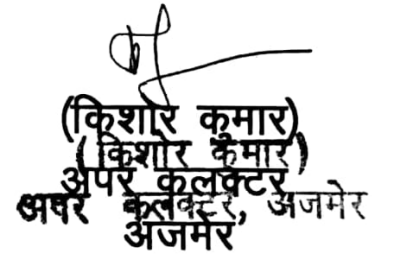 (किशोर कुमार)
(किशोर कुमार)
अपर कलक्टर
अपर कलक्टर, अजमेर
अजमेर